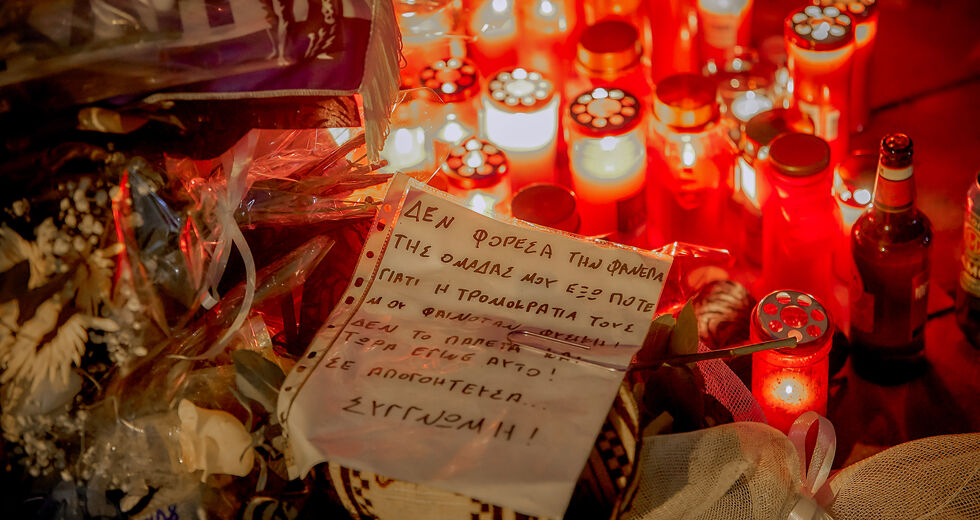 ΔΕΝ ΦΟΡΕΣΑ ΤΗΝ ΦΑΝΕΛΑ
ΤΗΣ ΟΜΑΔΑΣ ΜΟΥ ΕΞΩ ΠΟΤΕ
ΓΙΑΤΙ Η ΤΡΟΜΟΚΡΑΤΙΑ ΤΟΥΣ
ΜΟΥ ΦΑΙΝΟΤΑΝ ΦΥΣΙΚΗ!
ΔΕΝ ΤΟ ΠΑΛΕΨΑ ΚΑΙ
ΤΩΡΑ ΕΓΙΝΕ ΑΥΤΟ!
ΣΕ ΑΠΟΓΟΗΤΕΥΣΑ...
ΣΥΓΓΝΩΜΗ!